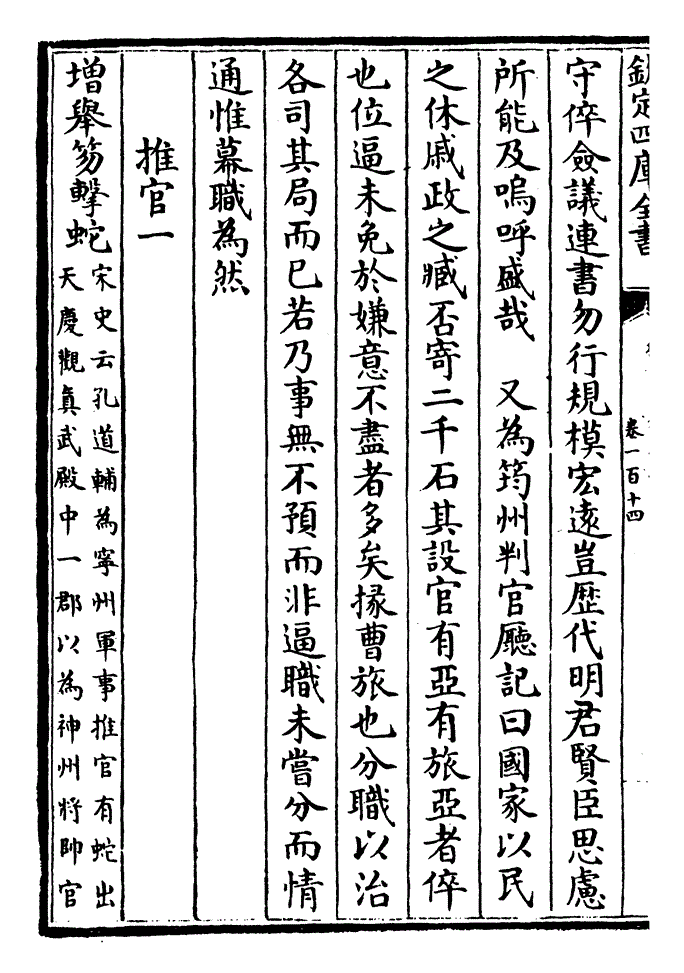 欽定四庫全書
卷一百十四
守倅僉議連書勿行規模宏遠豈歴代明君賢臣思慮
所能及嗚呼盛哉　又為筠州判官廳記曰國家以民
之休戚政之臧否寄二千石其設官有亞有旅亞者倅
也位逼未免於嫌意不盡者多矣掾曹旅也分職以治
各司其局而已若乃事無不預而非逼職未嘗分而情
通惟幕職為然
推官一
增舉笏擊蛇宋史云孔道輔為寧州軍事推官有蛇出
天慶觀真武殿中一郡以為神州將帥官